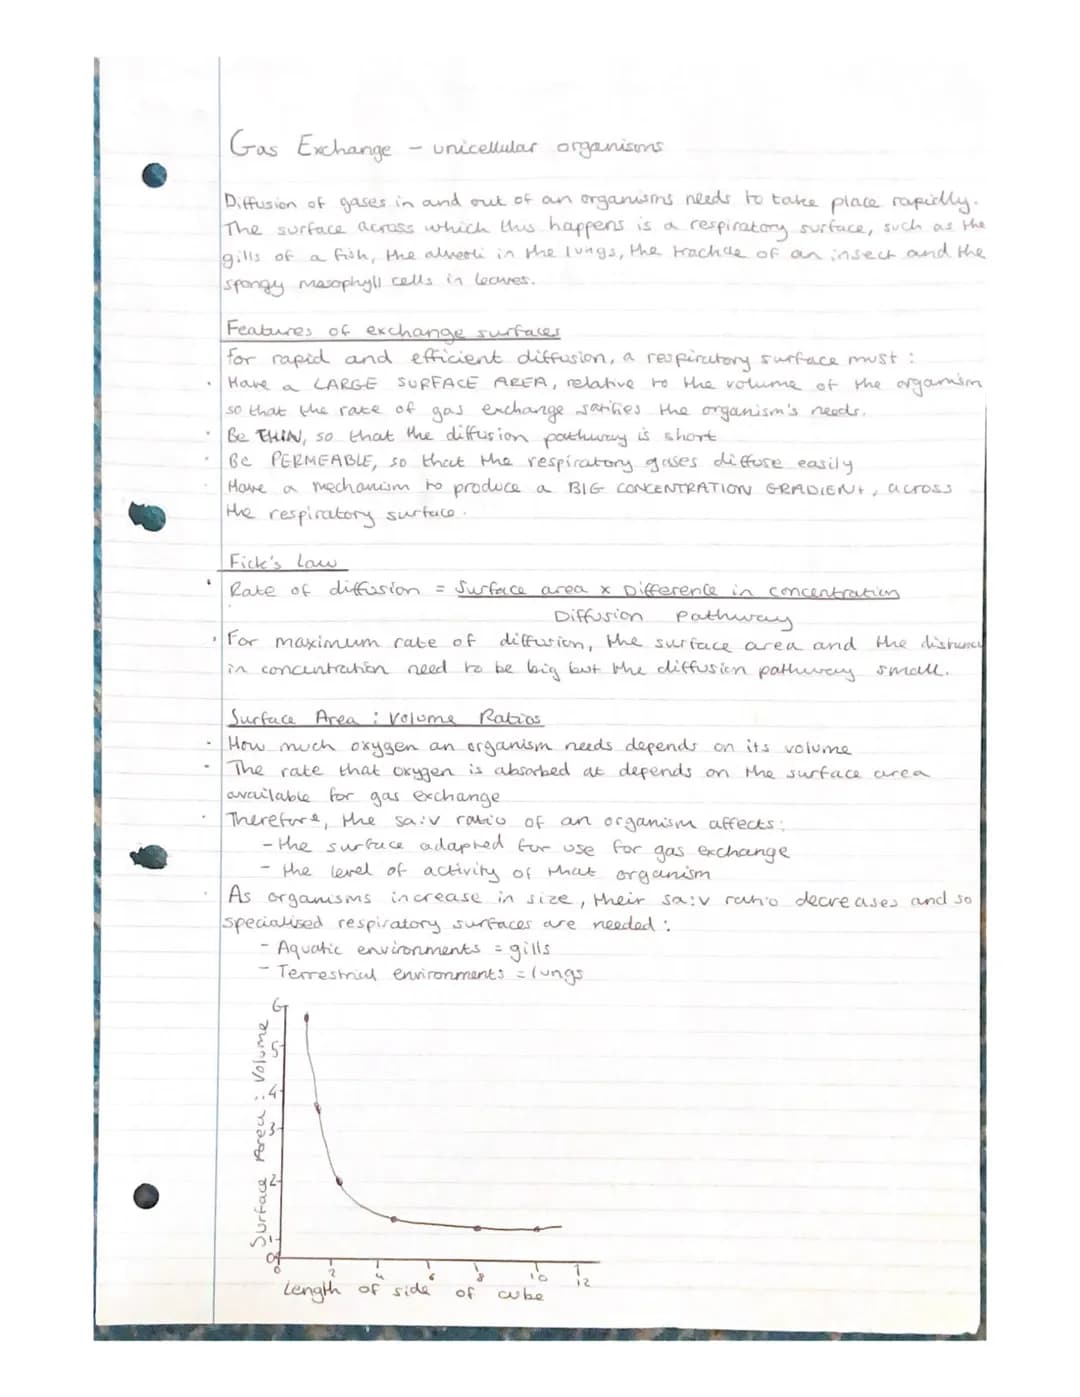 Gas Exchange - unicellular organisms
Diffusion of gases in and out of an organisms needs to take place rapidly.
The surface across which this happens is a respiratory surface, such as the
gills of a fish, the alveoli in the lungs, the trachae of an insect and the
spongy mesophyll cells in leaves.
Features of exchange surfaces
For rapid and efficient diffusion, a respiratory surface must :
· Have a LARGE SURFACE AREA, relative to the volume of the organism
so that the rate of gas exchange satifies the organism's needs.
· Be THIN, so that the diffusion pathway is short
· Be PERMEABLE, so that the respiratory gases diffuse easily
· Have a mechanism to produce a BIG CONCENTRATION GRADIENt, across
the respiratory surface.
Fick's Law
· Rate of diffusion = Surface area x Difference in concentration
Diffusion Pathway
· For maximum rate of diffusion, the surface area and the distance
in concentration need to be big but the diffusion pathway small.
Surface Area : Volume Ratios
· How much oxygen an organism needs depends on its volume
· The rate that oxygen is absorbed at depends on the surface area
available for gas exchange
· Therefore, the sa:v ratio of an organism affects:
- the surface adapted for use for gas exchange
- the level of activity of that organism
· As organisms increase in size, their sa:v ratio decreases and so
specialised respiratory surfaces are needed :
- Aquatic environments = gills
- Terrestrial environments = lungs
Surface Area : Volume
6
5
4
3
2
1
0
0 2 4 6 8 10 12
Length of side of cube